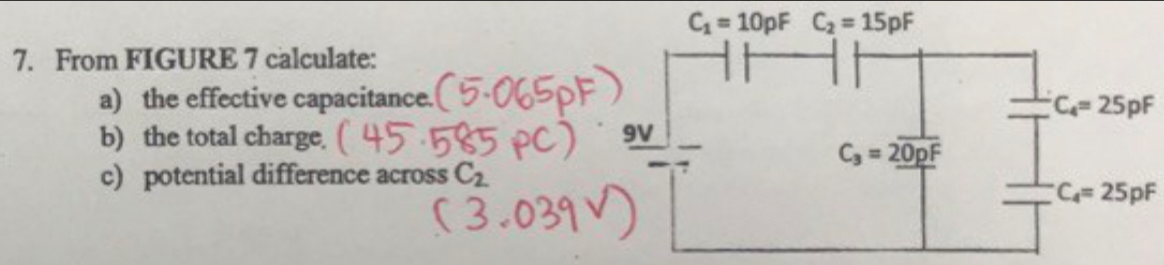 7. From FIGURE 7 calculate:
a) the effective capacitance. (5.065pF)
b) the total charge. (45.585 pC)
c) potential difference across C₂
(3.039V)
C₁ = 10pF C₂ = 15pF
9V
C₃ = 20pF
C₄= 25pF
C₄= 25pF